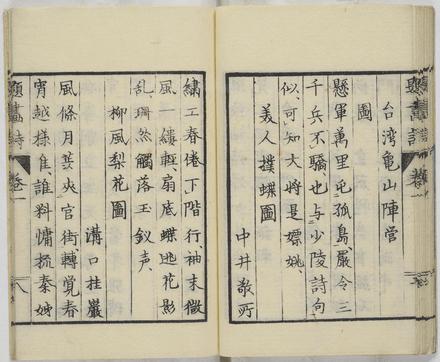 題畫詩 卷一
台湾亀山陣営
圖
懸軍萬里屯孤島嚴令三
千兵不驕也与少陵詩句
似可知大将是嫖姚
美人撲蝶圖
中井敬所
繍工春倦下階行袖末微
風一縷輕扇底蝶逃花影
乱珊然觸落玉釵声
柳風梨花圖
溝口桂巖
風條月蕊夾官街轉覺春
宵越様佳誰料慵梳秦姊
題畫詩 卷一 八